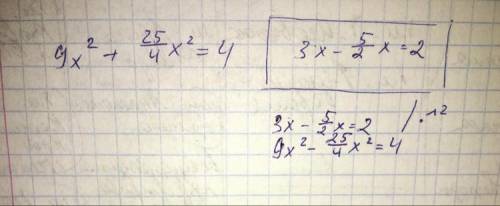 9x² + 25/4 x² = 4
3x - 5/2 x = 2
3x - 5/2 x = 2 / ·
9x² - 25/4 x² = 4